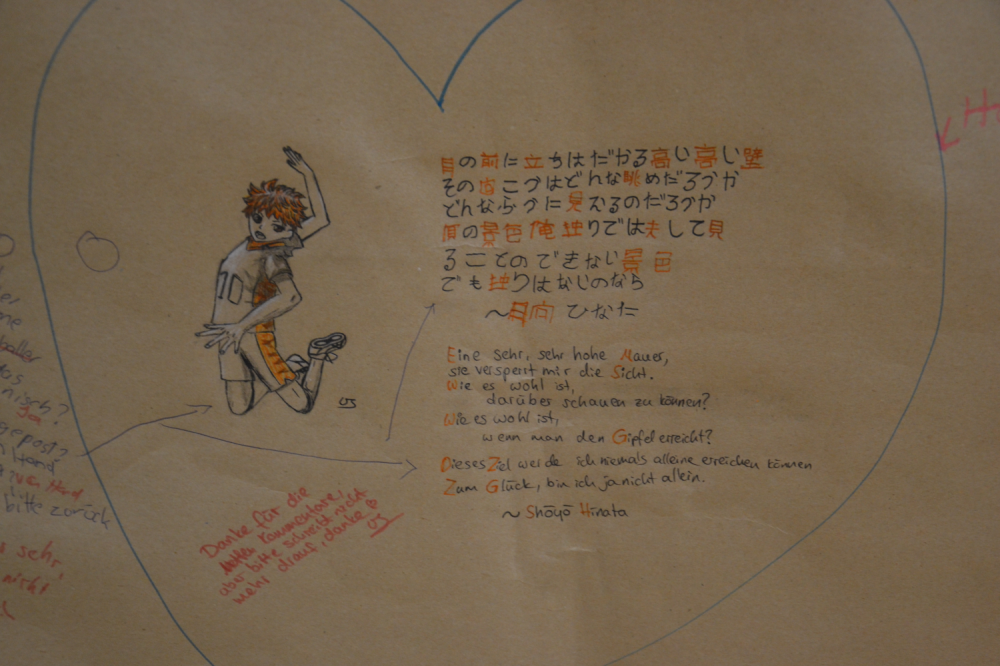 目の前に立ちはだかる高い高い壁
その向こうはどんな眺めだろうか
どんならうに見えるのだろうか
頂の景色俺独りでは決して見
ることのできない景色
でも独りはなじのなら
～日向 ひなた
Eine sehr, sehr hohe Mauer,
sie versperrt mir die Sicht.
Wie es wohl ist,
darüber schauen zu können?
Wie es wohl ist,
wenn man den Gipfel erreicht?
Dieses Ziel werde ich niemals alleine erreichen können
Zum Glück, bin ich ja nicht allein.
~ Shōyō Hinata
10
Danke für die
netten Kommentare,
aber bitte schreibt nicht
mehr drauf, danke
nisch?
gepost?
Hand
von Hand.
bitte zurück
sehr,
nicht